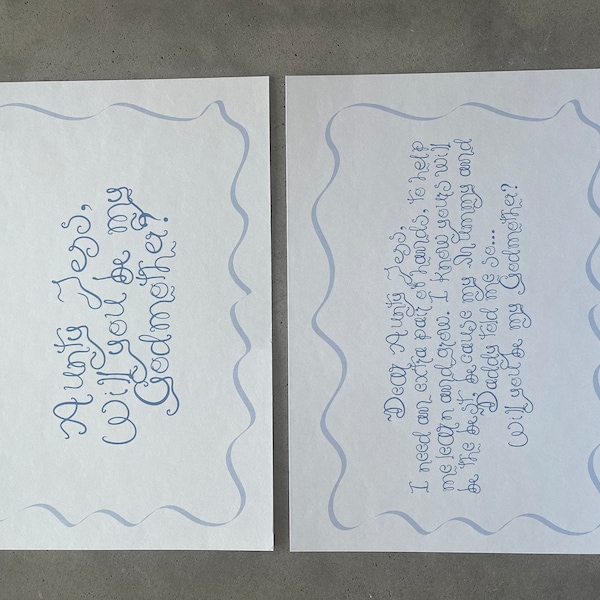 Aunty Jess,
Will you be my
Godmother?
Dear Aunty Jess,
I need an extra pair of hands, to help
me learn and grow. I know yours will
be the best, because my Mummy and
Daddy told me so...
Will you be my Godmother?